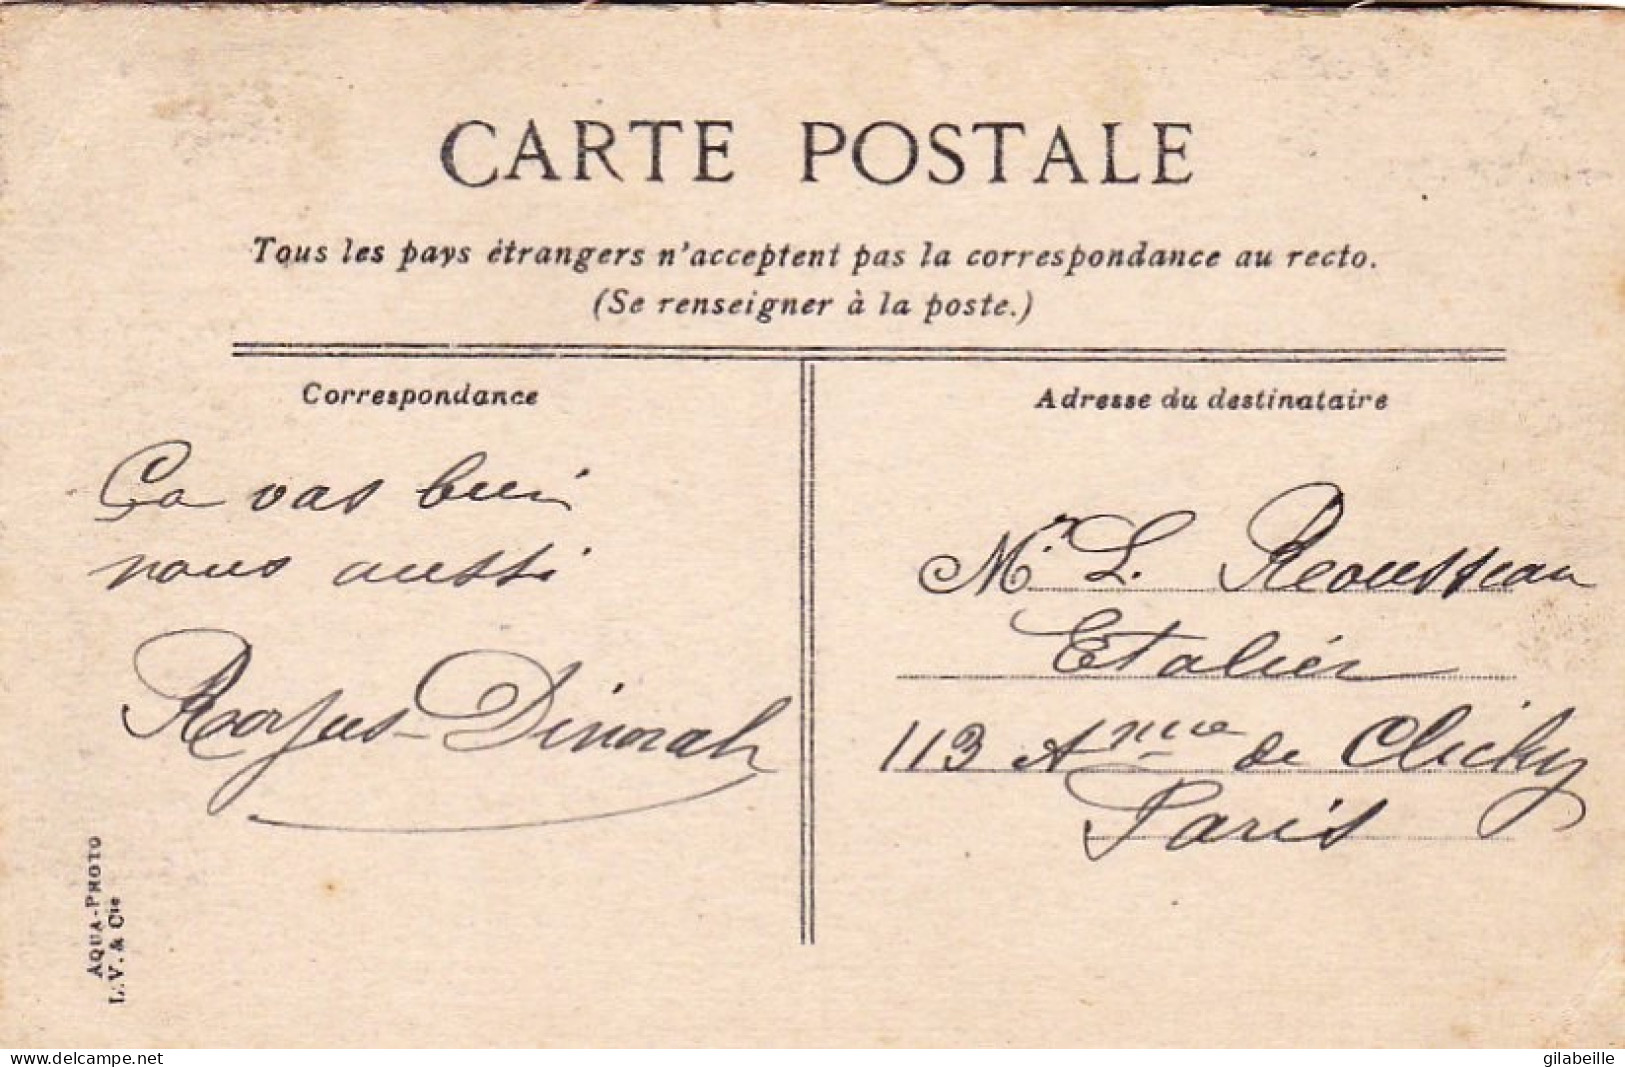 CARTE POSTALE
Tous les pays étrangers n'acceptent pas la correspondance au recto.
(Se renseigner à la poste.)
Correspondance
Ça vas bien
nous aussi
Dinorah
AQUA-PHOTO
L. V. & Cie
Adresse du destinataire
Mr. L. Rousseau
Etalier
113 Anue de Clichy
Paris
www.delcampe.net
gilabeille